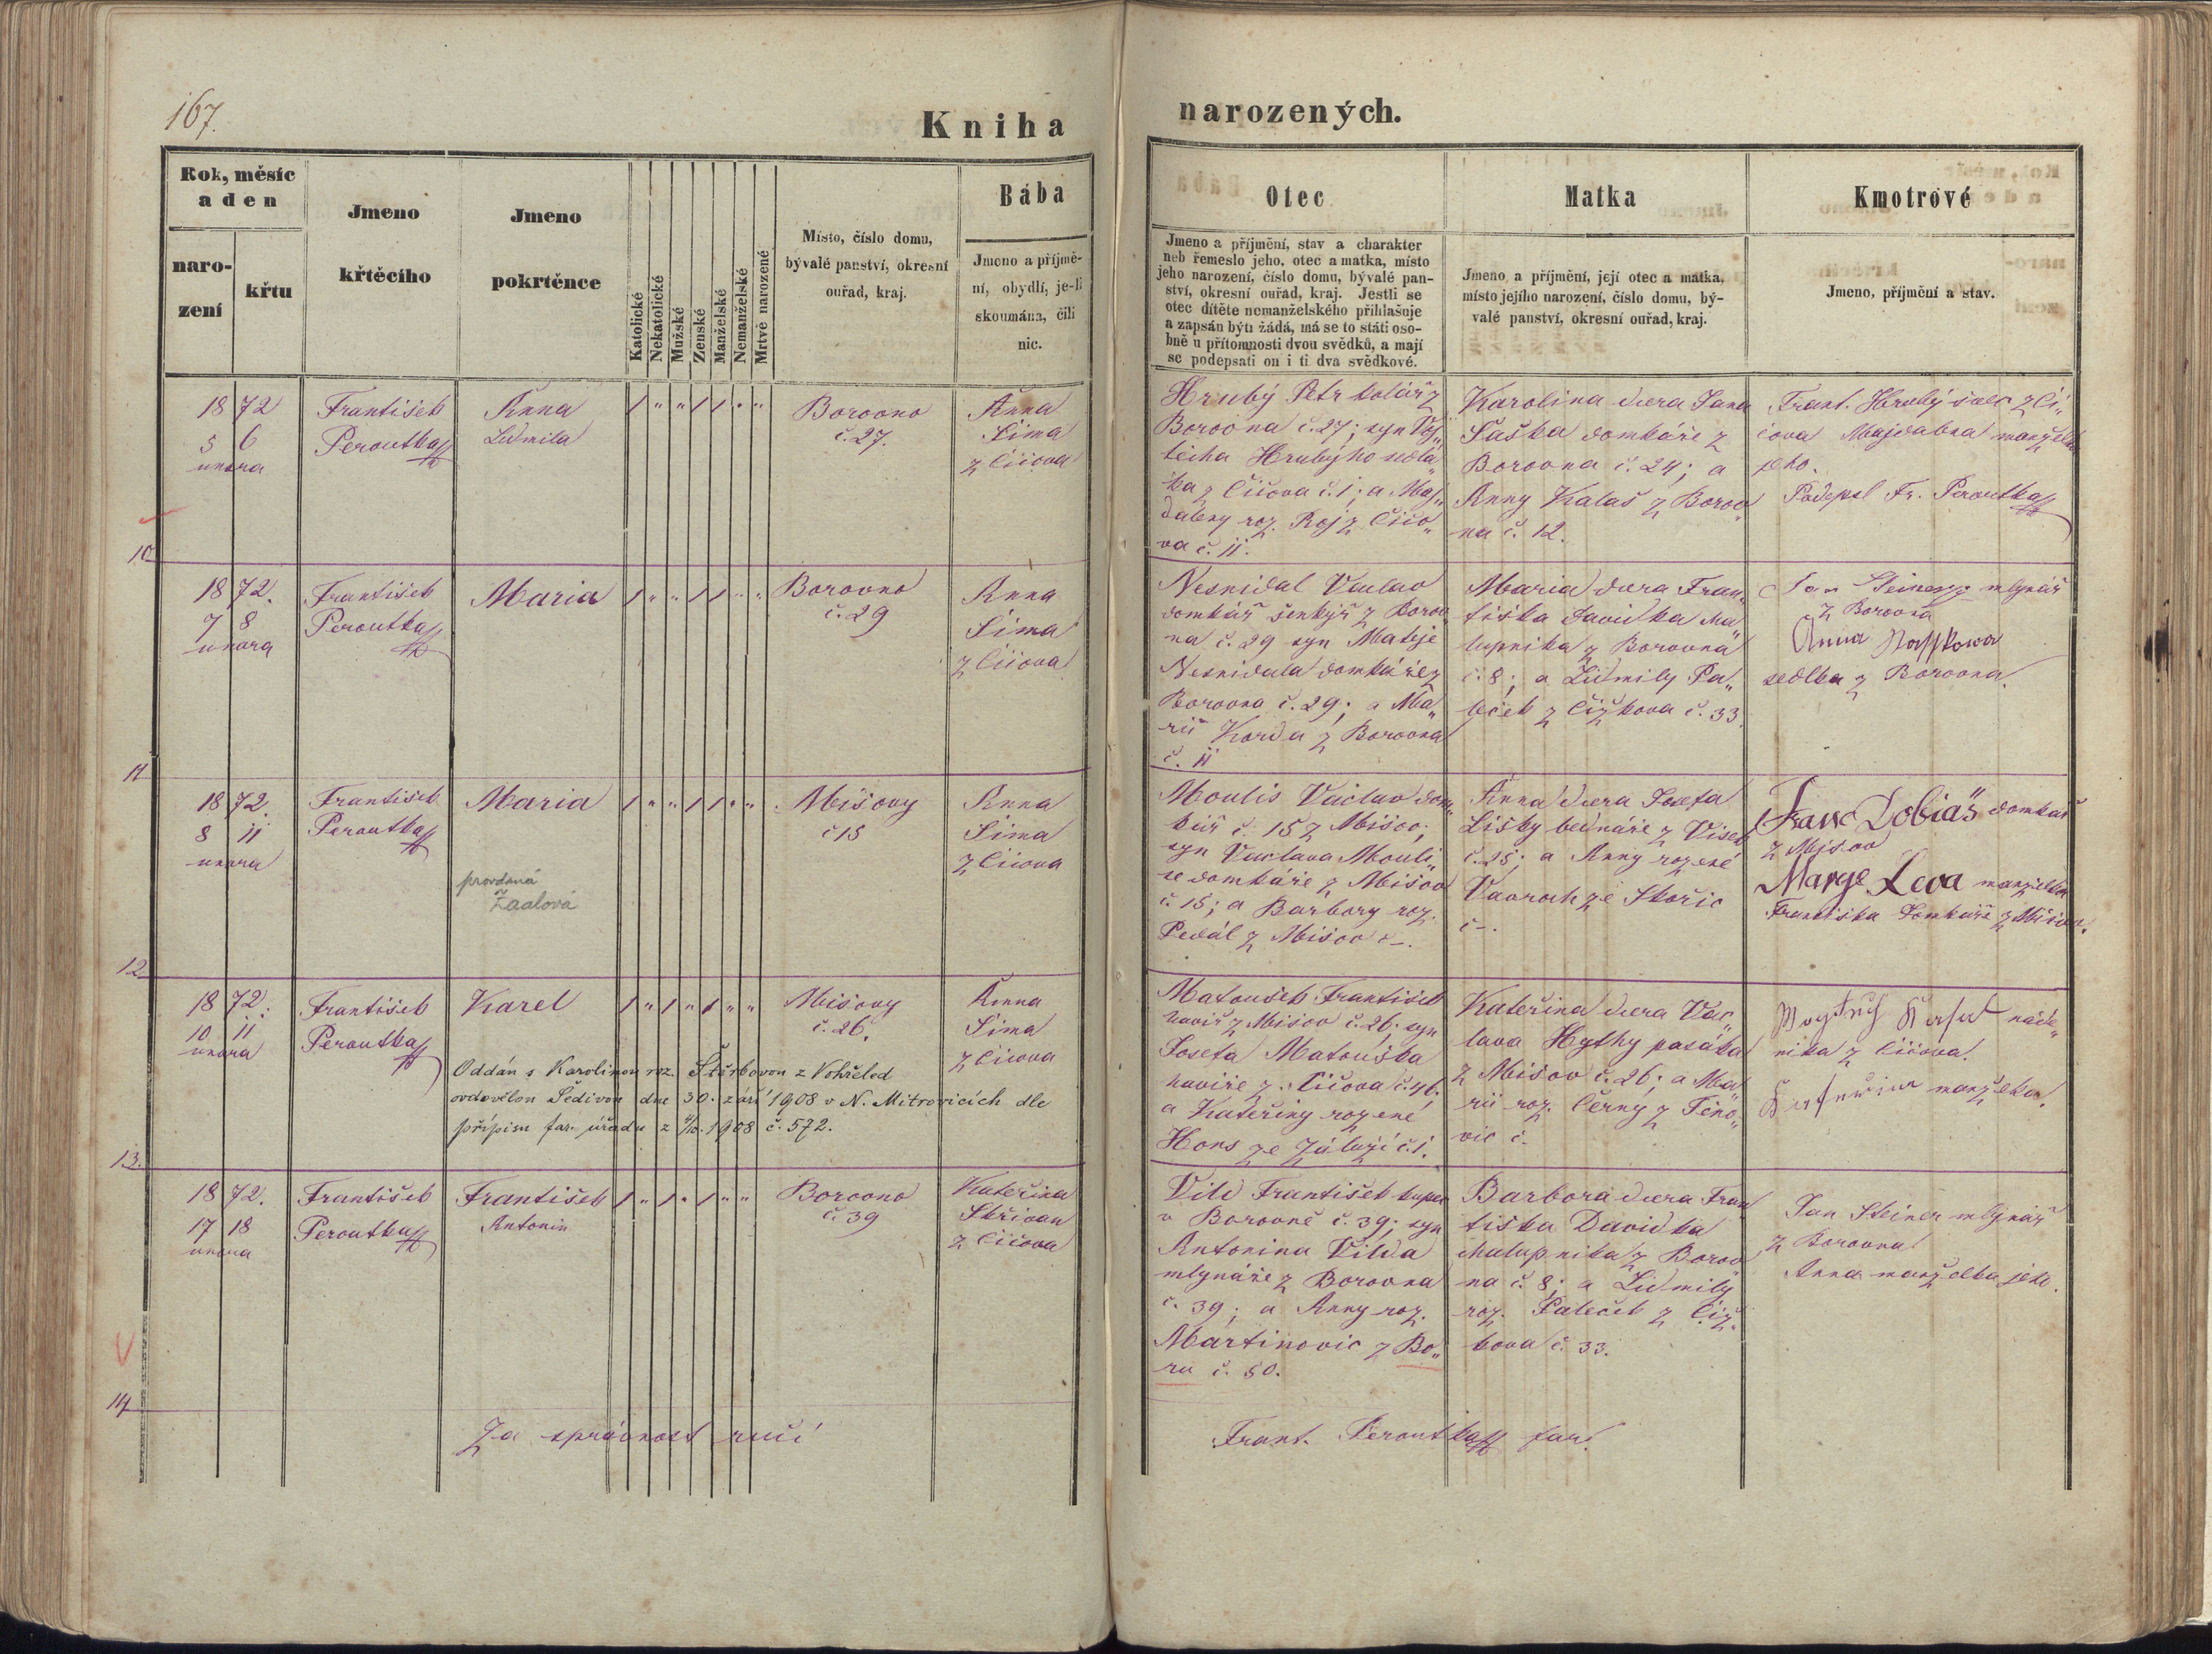 167.
Kniha narozených.
Rok, měsíc
a den
naro-
zení
křtu
Jmeno
křtěcího
Jmeno
pokrtěnce
Katolické
Nekatolické
Mužské
Zenské
Manželské
Nemanželské
Mrtvě narozené
Místo, číslo domu,
bývalé panství, okresní
ouřad, kraj.
Bába
Jmeno a příjmě-
ní, obydlí, je-li
skoumána, čili
nic.
Otec
Jmeno a příjmění, stav a charakter
neb řemeslo jeho, otec a matka, místo
jeho narození, číslo domu, bývalé pan-
ství, okresní ouřad, kraj. Jestli se
otec dítěte nemanželského přihlašuje
a zapsán býti žádá, má se to státi oso-
bně u přítomnosti dvou svědků, a mají
se podepsati on i ti dva svědkové.
Matka
Jmeno a příjmění, její otec a matka,
místo jejího narození, číslo domu, bý-
valé panství, okresní ouřad, kraj.
Kmotrové
Jmeno, příjmění a stav.
10
1872
5 6
února
František
Peroutka
Anna
Lidmila
1 " " 1 1 " "
Borovno
č. 27.
Anna
Šíma
z Číčova
Hrubý Petr kolář z
Borovna č. 27; syn Voj„
těcha Hrubýho sedlá„
ka z Číčova č. 1; a Maj„
dalény roz. Roj z Číčo„
va č. 11.
Karolina dcera Jana
Šaška domkáře z
Borovna č. 24; a
Anny Kalaš z Borov„
na č. 12.
Frant. Hrubý švec z Čí„
čova Majdalena manželka
jeho.
Podepsl Fr. Peroutka
11
1872.
7 8
února
František
Peroutka
Maria
1 " " 1 1 " "
Borovno
č. 29
Anna
Šíma
z Číčova
Nesnídal Václav
domkář šenkýř z Borov„
na č. 29 syn Matěje
Nesnídala domkáře z
Borovna č. 29; a Ma„
rii Korda z Borovna
č. 11
Maria dcera Fran„
tiška Davidka cha„
lupníka z Borovna
č. 8; a Lidmily Pa„
leček z Čížkova č. 33.
Jan Steiner mlynář
z Borovna
Anna
sedlka z Borovna.
12
1872.
8 11
února
František
Peroutka
Maria
provdaná
Žaalová
1 " " 1 1 " "
Míšovy
č 15
Anna
Šíma
z Číčova
Moulis Václav dom„
kář č. 15 z Míšov;
syn Václava Mouli„
se domkáře z Míšov
č. 15; a Barbory roz.
Pedál z Míšov č –.
Anna dcera Josefa
Lišky bednáře z Vísek
č. 25; a Anny rozené
Vavroch ze Skořic
č –.
Franc Dobiáš domkář
z Mišov
Marye Leva manželka
Františka domkáře z Míšov.
13.
1872.
10 11
února
František
Peroutka
Karel
1 " 1 " 1 " "
Míšovy
č. 26.
Anna
Šíma
z Číčova
Oddán s Karolinou roz. Štěrbovou z Vohřeled
ovdovělou Šedivou dne 30. září 1908 v N. Mitrovicích dle
přípisu far. úřadu z 4/10. 1908 č. 572.
Matoušek František
havíř z Míšov č. 26; syn
Josefa Matouška
havíře z Číčova č. 46;
a Kateřiny rozené
Hons ze Záluží č. 1.
Kateřina dcera Vác„
lava Hythy pasáka
z Míšov č. 26; a Ma„
rii roz. Černý z Těno„
vic č.
náde„
níka z Číčova.
manželka.
14
1872.
17 18
února
František
Peroutka
František
Antonín
1 " 1 " 1 " "
Borovno
č. 39
Kateřina
Skřivan
z Číčova
Vild František kupec
v Borovně č. 39; syn
Antonína Vilda
mlynáře z Borovna
č. 39; a Anny roz.
Martinovic z Bo„
ru č. 50.
Barbora dcera Fran„
tiška Davidka
chalupníka z Borov„
na č. 8; a Lidmily
roz. Paleček z Číž„
kova č. 33.
Jan Steiner mlynář
z Borovna
Anna manželka jeho.
Za správnost ručí
Frant. Peroutka far.